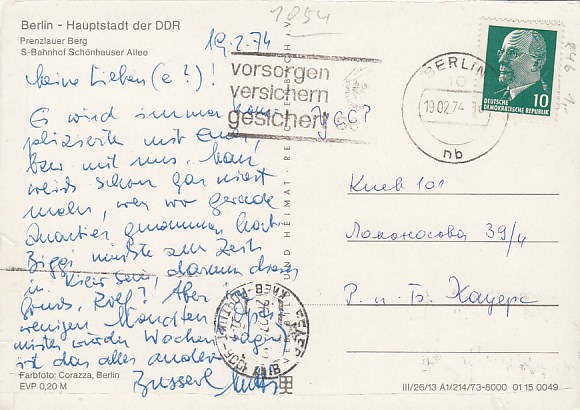 Berlin - Hauptstadt der DDR
Prenzlauer Berg
S-Bahnhof Schönhauser Allee
1854
19.2.74
Meine Lieben(e?)!
Es wird immer kom-
plizierter mit Euch
bzw mit uns. Man
weiß schon gar nicht
mehr, wer wo gerade
Quartier genommen hat.
Biggi müßte zur Zeit
in Kiew sein, darum dieser
Gruß, Rolf? Aber in
wenigen Monaten
Wochen
ist das alles anders
Busserl
vorsorgen
versichern
gesichert
BERLIN
19.02.74
nb
DEUTSCHE
DEMOKRATISCHE REPUBLIK
10
УССР
Киев 101
Ломоносова 39/4
Р. и Б. Хауерс
UND HEIMAT
Farbfoto: Corazza, Berlin
EVP 0,20 M
III/26/13 A1/214/73-8000 01 15 0049